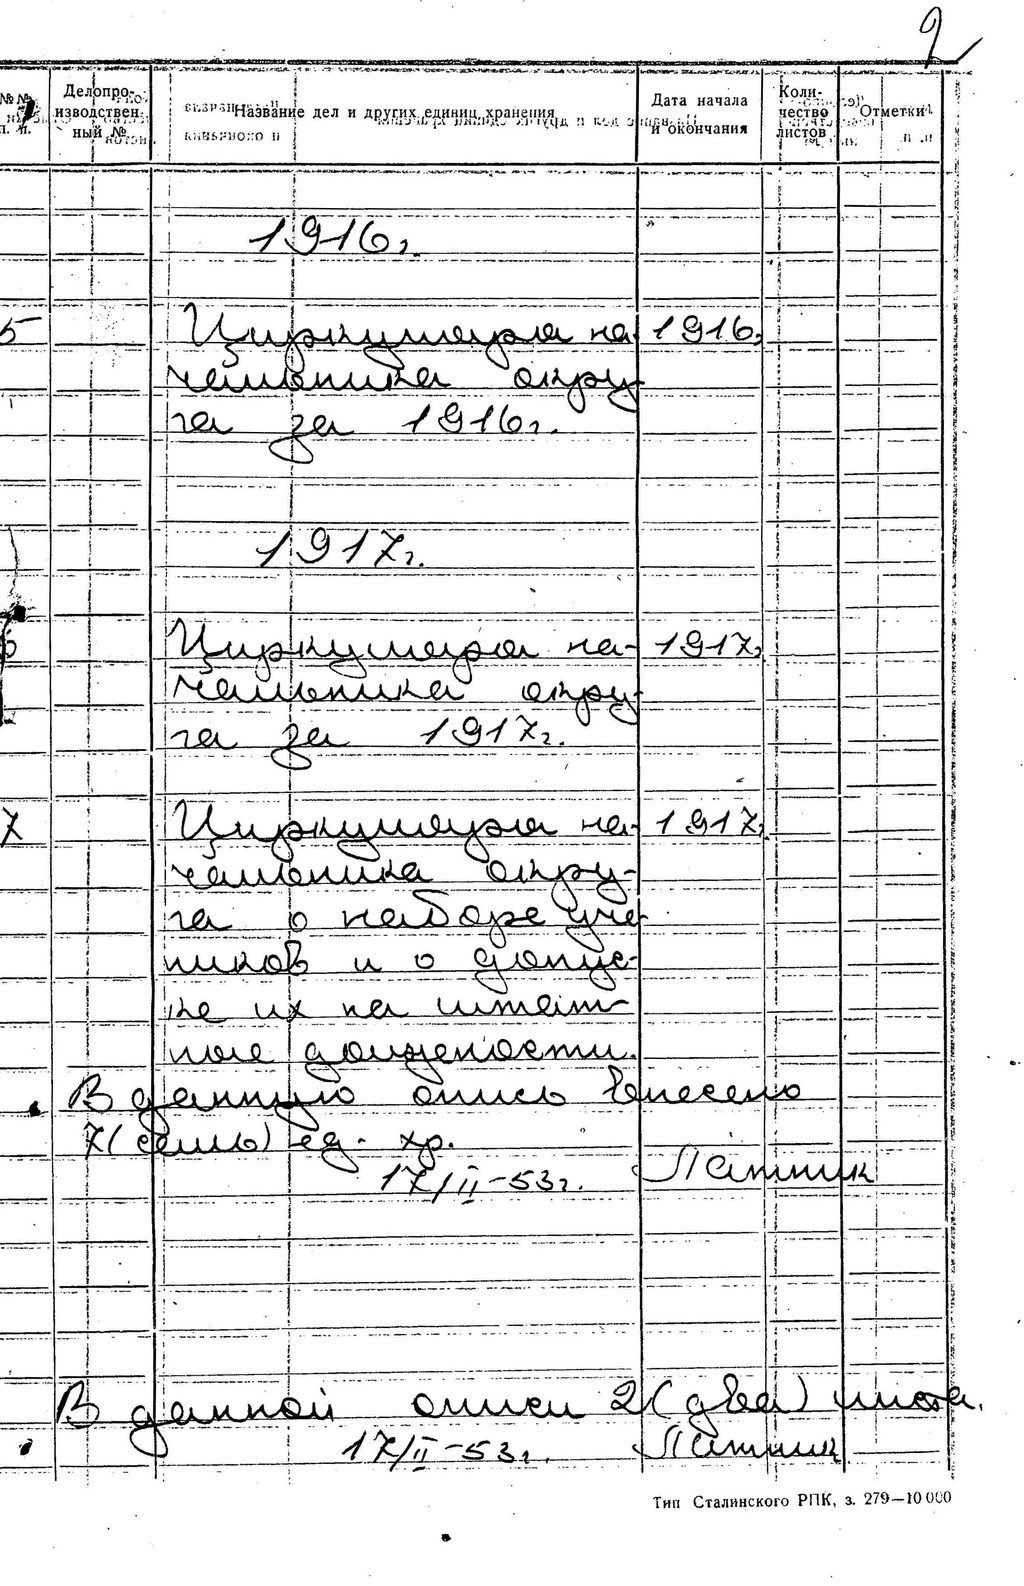 2
№№ п. п.
Делопро-
изводствен-
ный №
Название дел и других единиц хранения
Дата начала
и окончания
Коли-
чество
листов
Отметки
1916г.
5 Циркуляры на- 1916г.
чальника окру-
га за 1916г.
1917г.
6 Циркуляры на- 1917г.
чальника окру-
га за 1917г.
7 Циркуляры на- 1917г.
чальника окру-
га о наборе уче-
ников и о допус-
ке их на штат-
ные должности.
В данную опись внесено
7 (семь) ед. хр.
17/II-53г.
В данной описи 2 (два) листа.
17/II-53г.
Тип Сталинского РПК, з. 279—10 000